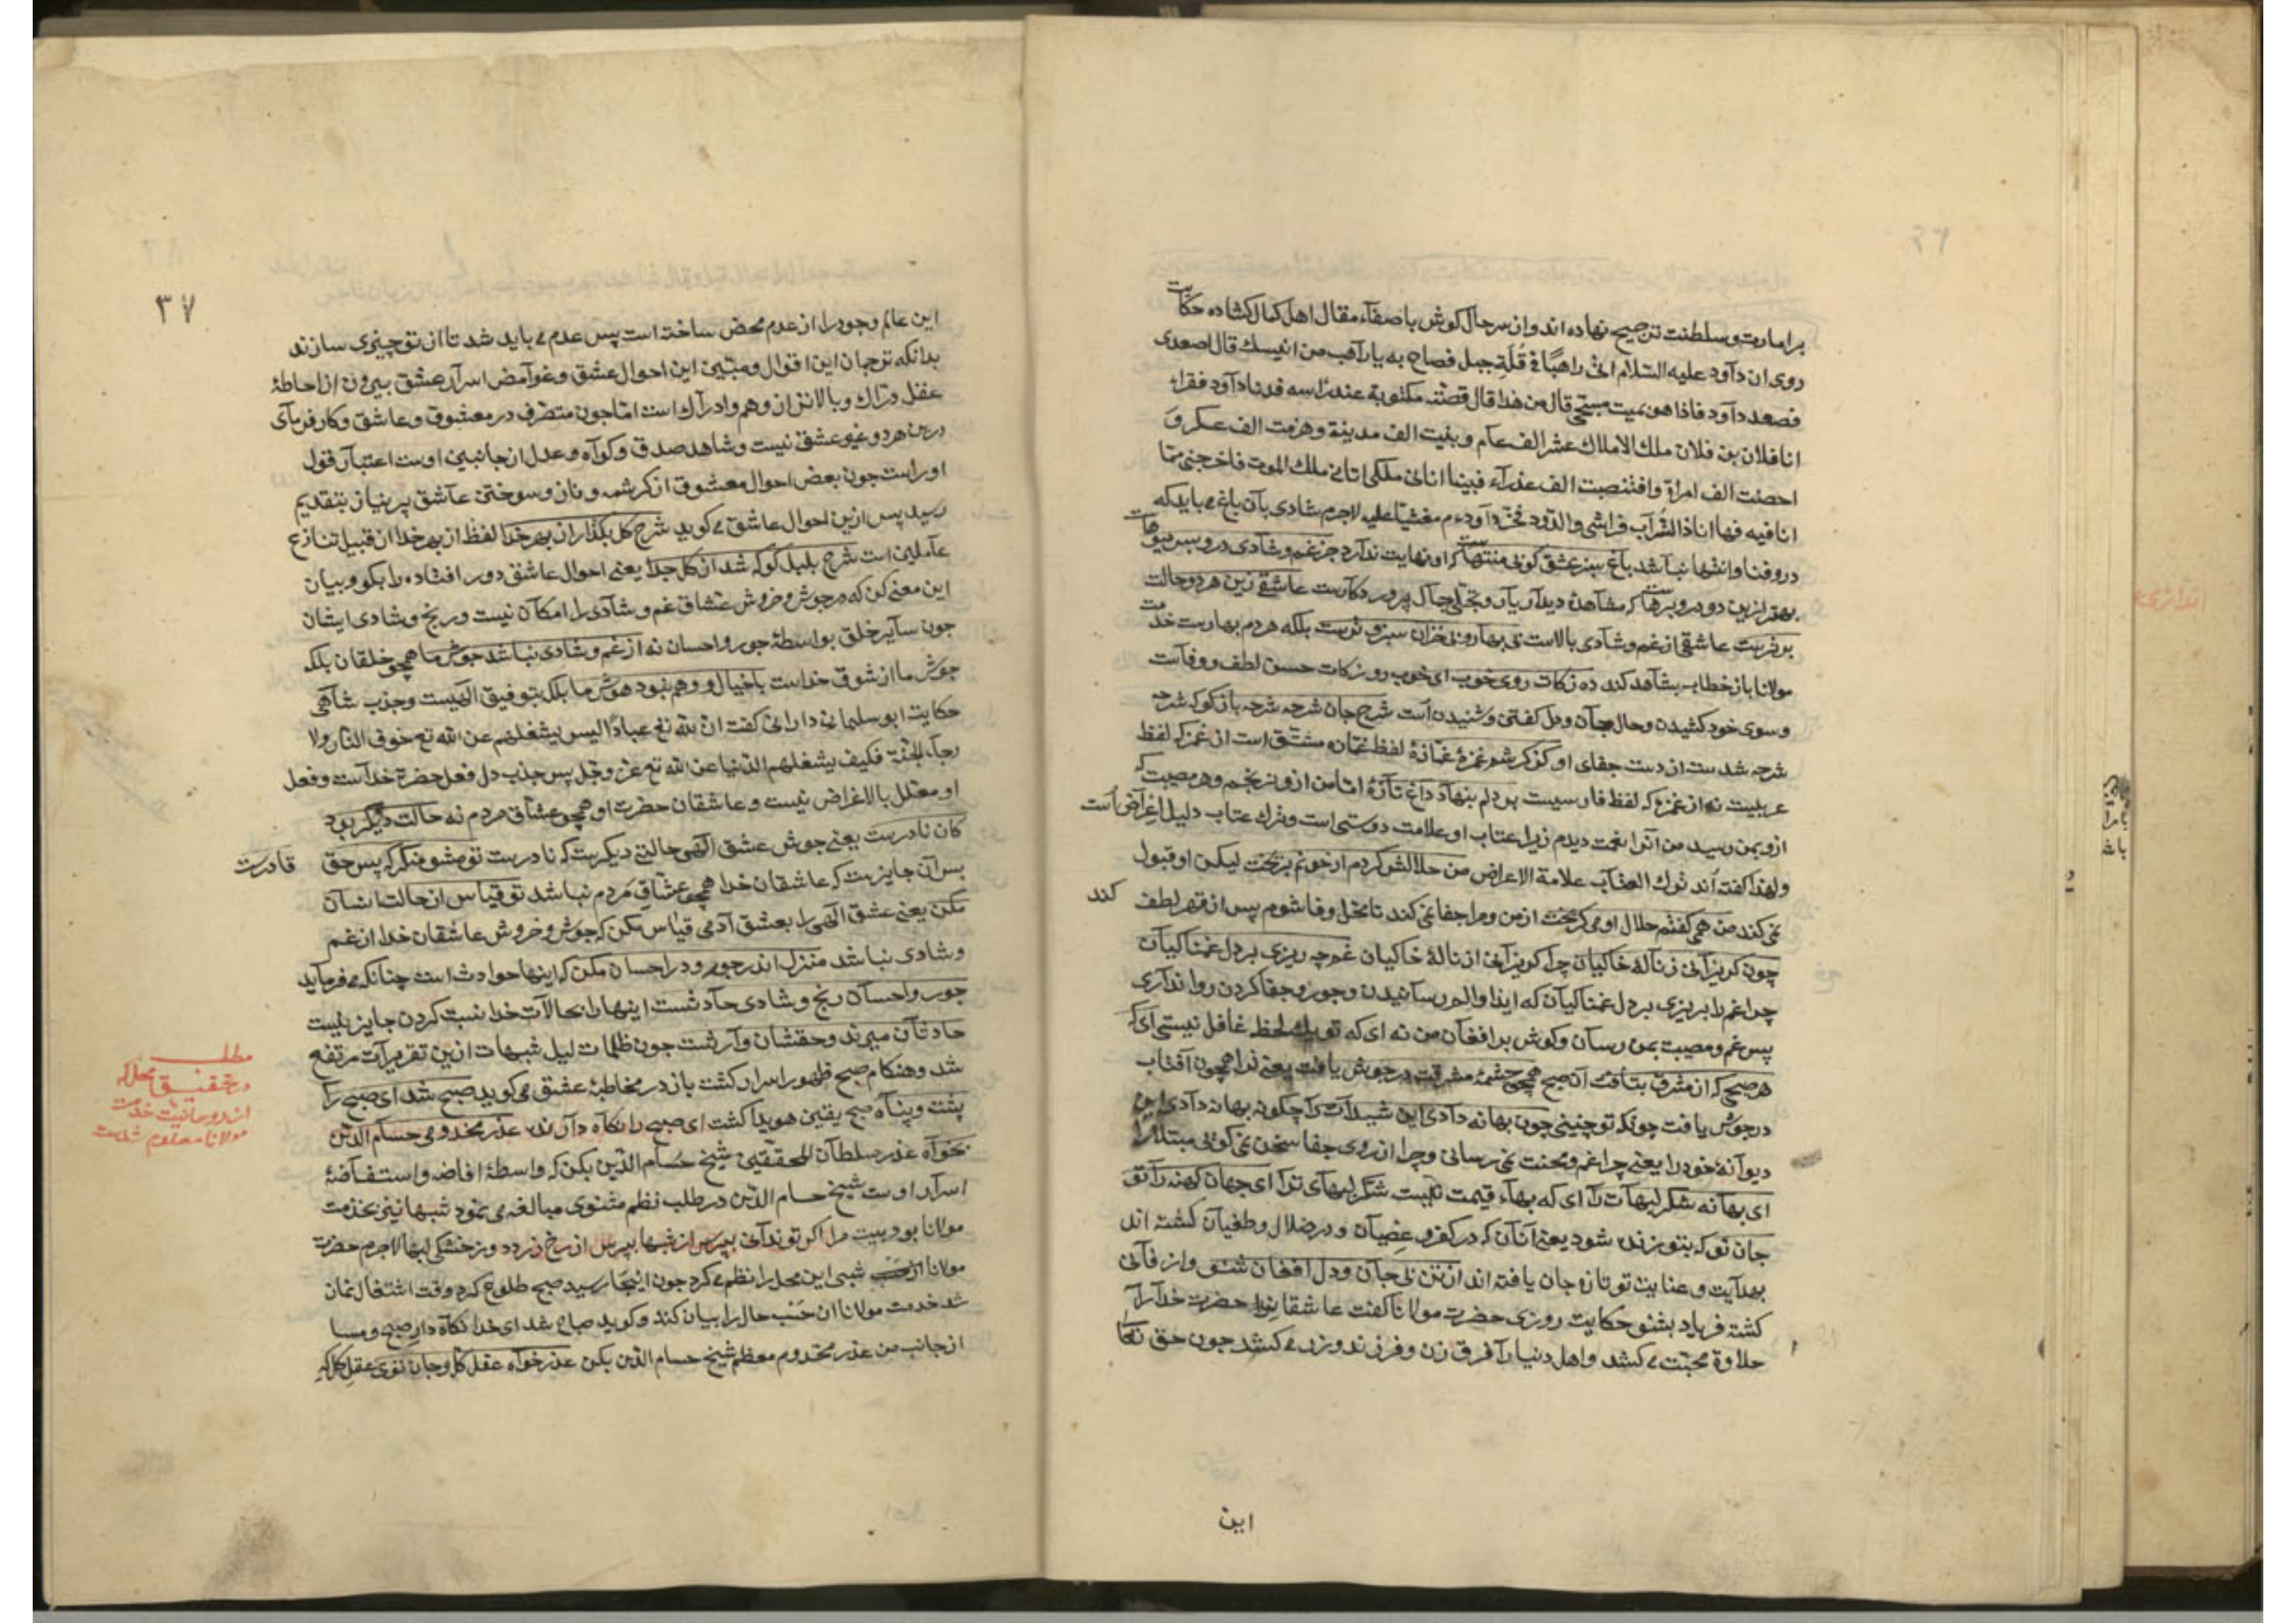 برامارت و سلطنت ترجیح نهاده اند و از سرحال کوش باصغاء مقال اهل کمال کشاده حکایت
روی ان داود علیه السلام اتی راهبًا فی قُلّة جبل فصاح به یا راهب من انیسك قال اصعدی
فصعد داود فاذا هو بمیت مسجّی قال من هذا قال قصّته مکتوبة عند راسه فدنا داود فقراء
انا فلان بن فلان ملك الاملاك عشر الف عام و بنیت الف مدینة و هزمت الف عسکر و
احصنت الف امراة و افتضضت الف عذراء فبینا انا فی ملکی اتانی ملك الموت فاخرجنی مما
انا فیه فها انا ذا التراب فراشی والدّود داود م مغشیّا علیه لاجرم شادی بآن باغ می باید که
درو فنا و انتها نباشد باغ سبز عشق کوبی منتهاست که او نهایت ندارد جز غم و شادی درو بس میوهاست
بهتر ازین دو درو برهاست که مشاهدۀ دیدار یار و تجلّی جمال پروردکارست عاشقی زین هر دو حالت
برترست عاشقی از غم و شادی بالاست بی بهار و بی خزان سبز و ترست بلکه هر دم بهارست خدمت
مولانا باز خطاب بشاهد کند ده زکات روی خوب ای خوب رو زکات حسن لطف و وفاست
و سوی خود کشیدن و حال جان و دل کفتن و شنیدن است شرح جان شرحه شرحه بازکو که شرحه
شرحه شدست از دست جفای او کز کرشم غمزۀ غمّازۀ لفظ غمّازه مشتق است از غمز که لفظ
عربیست نه از غمزه که لفظ فارسیست بر دلم بنهاد داغ تازۀ امّا من ازو نرنجم و هر مصیبت که
ازو بمن رسید من آنرا نعمت دیدم زیرا عتاب او علامت دوستی است و ترك عتاب دلیل اعراض است
و لهذا کفته اند ترك العتاب علامة الاعراض من حلالش کردم ار خونم بریخت لیکن او قبول
نمی کند من همی کفتم حلال او می کریخت از من و مرا جفا نمی کند تا محل وفا شوم پس از قهر لطف کند
چون کریزانی ز نالۀ خاکیان چرا کریزانی از نالۀ خاکیان غم چه ریزی بر دل غمناکیان
چرا غم را بریزی بر دل غمناکیان که ایذا و الم رسانیدن و جور و جفا کردن روا نداری
پس غم و مصیبت بمن رسان و کوش بر افغان من نه ای که تو یك لحظه غافل نیستی ای که
هر صبحی که از مشرق بتافت آن صبح همچو چشمۀ مشرقت در جوش یافت یعنی ترا همچون آفتاب
در جوش یافت چونکه تو چنینی چون بهانه دادی این شیدات را چکونه بهانه دادی این
دیوانۀ خود را یعنی چرا غم و محنت نمی رسانی و چرا از روی جفا سخن نمی کوئی مبتلا را
ای بهانه شکر لبهات را ای که بهاء قیمت نیست شکر لبهای ترا ای جهان کهنه را تو
جان نو که بتو زنده شود یعنی آنان که در کفر و عصیان و در ضلال و طغیان کشته اند
بهدایت و عنایت تو تازه جان یافته اند از تن بی جان و دل افغان شنو و از فانی
کشته فریاد بشنو حکایت روزی حضرت مولانا کفت عاشقانرا حضرت خدا را
حلاوة محبّت می کشد و اهل دنیا را فرق زن و فرزند و زر می کشد چون حق تعالی
این
۳۷
این عالم وجود را از عدم محض ساخته است پس عدم می باید شد تا از تو چیزی سازند
بدانکه ترجمان این اقوال و مبیّن این احوال عشق و غوامض اسرار عشق بیرون از احاطۀ
عقل درّاك و بالاتر از وهم و ادراك است امّا چون متصرّف در معشوق و عاشق و کارفرمای
درین هر دو غیر عشق نیست و شاهد صدق و کواه و عدل از جانبین اوست اعتبار قول
اوراست چون بعض احوال معشوق از کرشمه و ناز و سوختن عاشق پر نیاز بتقدیم
رسید پس ازین احوال عاشق می کوید شرح کل بکذار از بهر خدا لفظ از بهر خدا از قبیل تنازع
عاملین است شرح بلبل کو که شد از کل جدا یعنی احوال عاشق دور افتاده را بکو و بیان
این معنی کن که در جوش و خروش عشّاق غم و شادی را امکان نیست و رنج و شادی ایشان
چون سایر خلق بواسطۀ جور و احسان نه از غم و شادی نباشد جوش ما همچو خلقان بلکه
جوش ما از شوق خداست با خیال و وهم نبود هوش ما بلکه بتوفیق الهیست و جذب شاهی
حکایت ابو سلیمان دارانی کفت ان لله تع عبادًا لیس یشغلهم عن الله تع خوف النار ولا
رجاء الجنّة فکیف یشغلهم الدنیا عن الله تع عزّ و جلّ پس جذب دل فعل حضرة خداست و فعل
او معلّل بالاغراض نیست و عاشقان حضرت او همچو عشّاق مردم نه حالت دیکر بود
کان نادرست یعنی جوش عشق الهی حالتی دیکرست که نادرست تو مشو منکر که پس حق قادرست
پس آن جایزست که عاشقان خدا همچو عشّاق مردم نباشد تو قیاس از حالت انسان
مکن یعنی عشق الهی را بعشق آدمی قیاس مکن که جوش و خروش عاشقان خدا از غم
و شادی نباشد منزل اندر جور و در احسان مکن که اینها حوادث است چنانکه می فرماید
جور و احسان رنج و شادی حادثست اینها را بحالات خدا نسبت کردن جایز نیست
حادثان میرند و حقشان وارثست چون ظلمات لیل شبهات ازین تقریرات مرتفع
شد و هنکام صبح ظهور اسرار کشت باز در مخاطبۀ عشق می کوید صبح شد ای صبح را
پشت و پناه صبح یقین هویدا کشت ای صبح را نکاه دارنده عذر مخدومی حسام الدّین
بخواه عذر سلطان المحققین شیخ حسام الدّین بکن که واسطۀ افاضه و استفاضۀ
اسرار اوست شیخ حسام الدّین در طلب نظم مثنوی مبالغه می نمود شبها نیز بخدمت
مولانا بود بیت مرا اکر تو ندانی بپرس از شبها بپرس از رخ زرد و ز خشکی لبها لاجرم حضرت
مولانا شبی این محل را نظم می کرد چون اینجا رسید صبح طلوع کرد وقت اشتغال نماز
شد خدمت مولانا ان حسب حال را بیان کند و کوید صباح شد ای خدا نکاه دار صبح و مسا
از جانب من عذر مخدوم معظم شیخ حسام الدّین بکن عذر خواه عقل کل و جان توی عقل کل که
مطلب
در تحقیق محل که
از روحانیّت خدمت
مولانا معلوم شدست